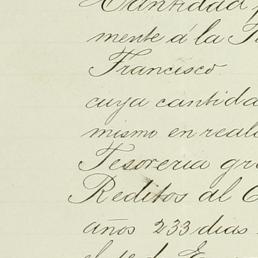 Cantidad
mente á la
Francisco
cuya cantida
mismo en real
Tesoreria gr
Reditos al
años 233 dias